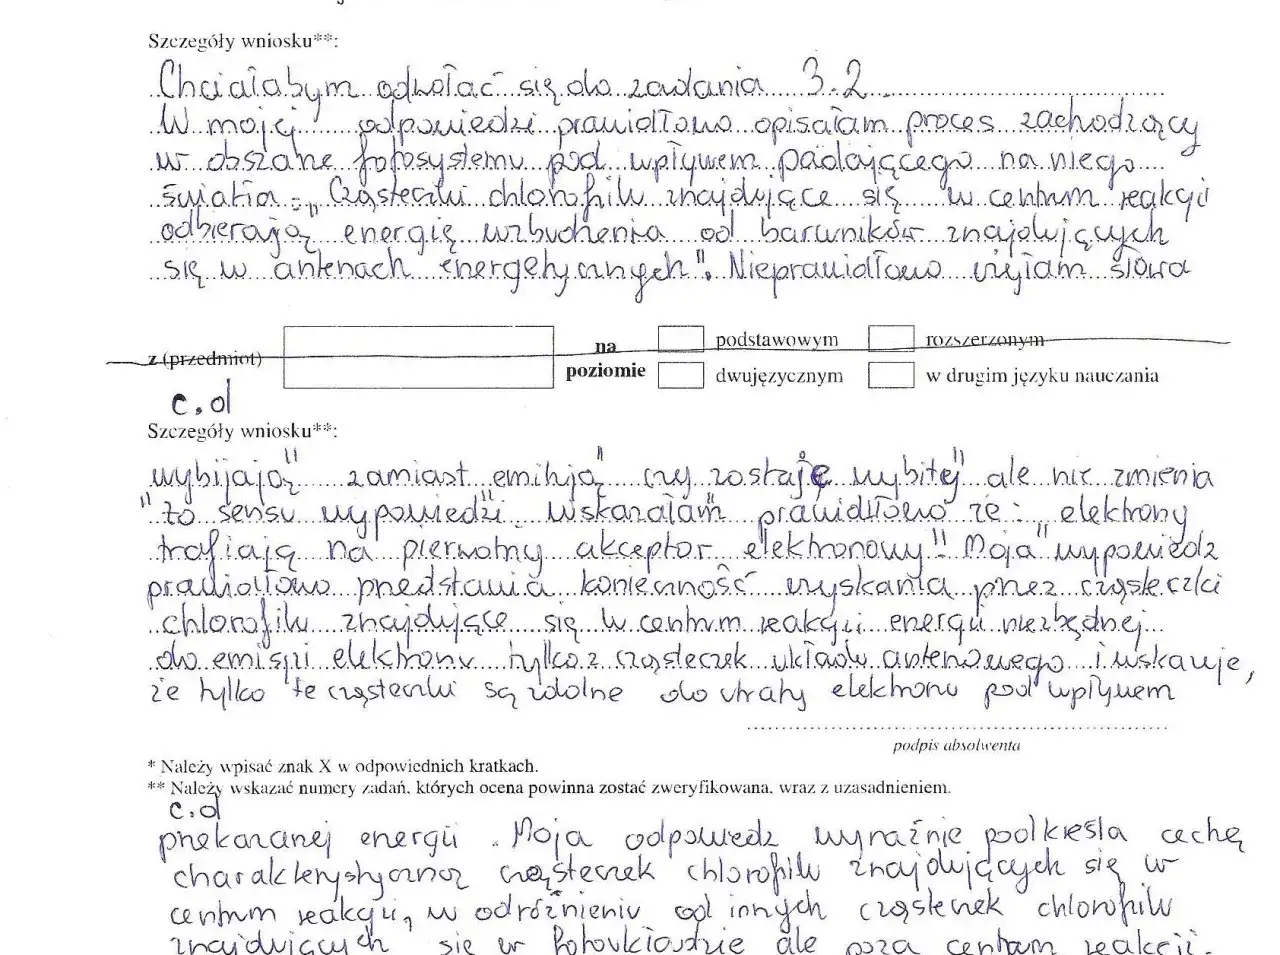 Szczegóły wniosku**:
Chciałabym odwołać się do zadania 3.2.
W mojej odpowiedzi prawidłowo opisałam proces zachodzący
w obszarze fotosystemu pod wpływem padającego na niego
światła: "Cząsteczki chlorofilu znajdujące się w centrum reakcji
odbierają energię wzbudzenia od barwników znajdujących
się w antenach energetycznych". Nieprawidłowo użyłam słowa
z (przedmiot)
na poziomie
podstawowym
rozszerzonym
dwujęzycznym
w drugim języku nauczania
c.d
Szczegóły wniosku**:
wybijają" zamiast "emitują" czy zostaje wybitej" ale nie zmienia
to sensu wypowiedzi. Wskazałam prawidłowo że: "elektrony
trafiają na pierwotny akceptor elektronowy". Moja wypowiedz
prawidłowo przedstawia konieczność uzyskania przez cząsteczki
chlorofilu znajdujące się w centrum reakcji energii niezbędnej
do emisji elektronu tylko z cząsteczek układu antenowego i wskazuje,
że tylko te cząsteczki są zdolne do utraty elektronu pod wpływem
podpis absolwenta
* Należy wpisać znak X w odpowiednich kratkach.
** Należy wskazać numery zadań, których ocena powinna zostać zweryfikowana, wraz z uzasadnieniem.
c.d
przekazanej energii. Moja odpowiedz wyraźnie podkreśla cechę
charakterystyczną cząsteczek chlorofilu znajdujących się w
centrum reakcji, w odróżnieniu od innych cząsteczek chlorofilu
znajdujących się w fotoukładzie ale poza centrum reakcji.